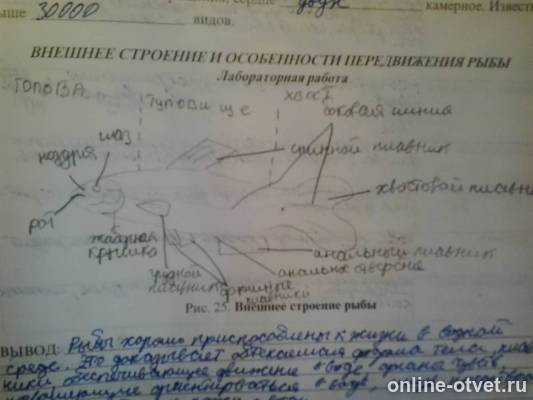 сердце двух камерное. Извест
ыше 30000 видов.
ВНЕШНЕЕ СТРОЕНИЕ И ОСОБЕННОСТИ ПЕРЕДВИЖЕНИЯ РЫБЫ
Лабораторная работа
ГОЛОВА
Туловище
хвост
боковая линия
глаз
ноздря
спинной плавник
хвостовой плавни
рот
жаберная крышка
анальный плавник
грудной плавник
анальное
брюшные плавники
Рис. 25. Внешнее строение рыбы
ВЫВОД: Рыбы хорошо приспособлены к жизни в водной
среде. Это доказывает обтекаемая форма тела, плав
ники обеспечивающие движение в воде, органы чувств
ориентироваться в воде,
online-otvet.ru